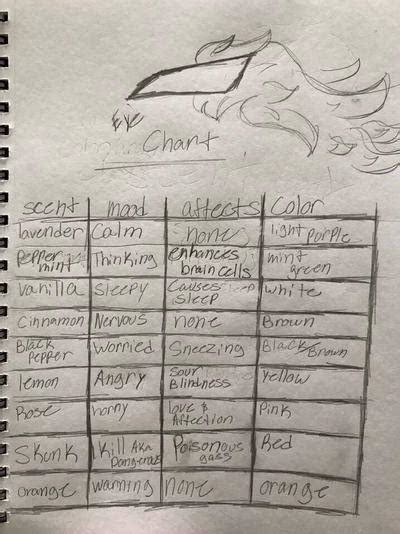 Eye
Chart
scent mood affects Color
lavender Calm none light purple
pepper mint Thinking enhances brain cells mint green
vanilla sleepy causes sleep white
Cinnamon Nervous none Brown
Black pepper Worried Sneezing Black/Brown
lemon Angry Sour Blindness Yellow
Rose horny love & Affection Pink
Skunk Kill AKA Dangerous Poisonous gass Red
orange warning none orange